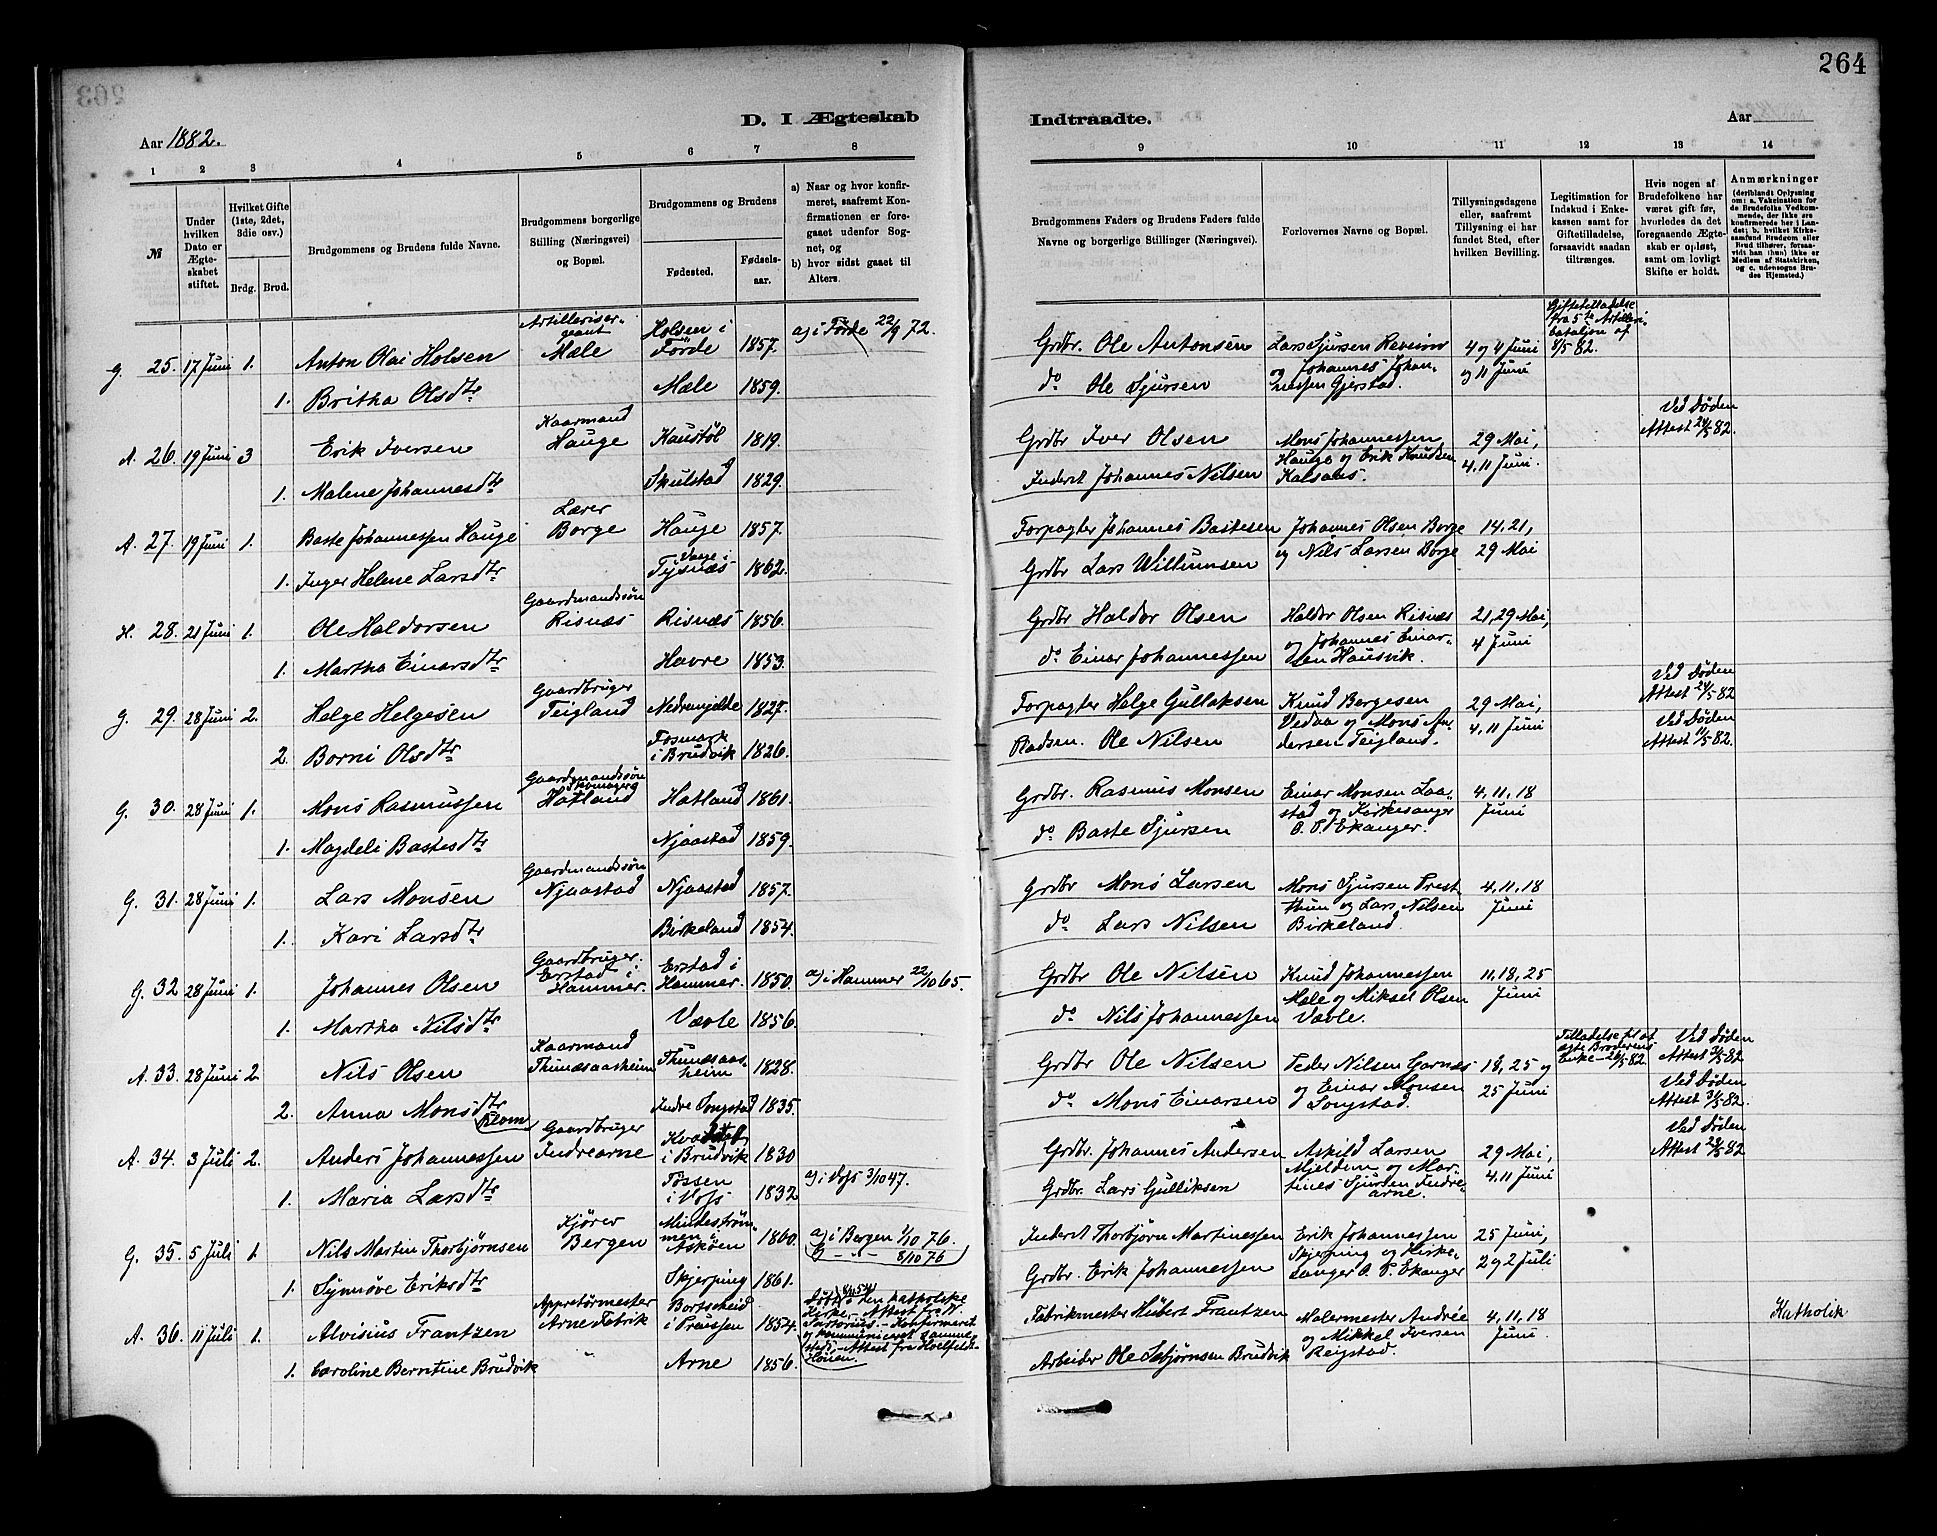 264
Aar 1882.
D. I Ægteskab
Indtraadte.
Aar
1 2 3 4 5 6 7 8
9 10 11 12 13 14
№
Under hvilken Dato er Ægteskabet stiftet.
Hvilket Gifte (1ste, 2det, 3die osv.)
Brdg. Brud.
Brudgommens og Brudens fulde Navne.
Brudgommens borgerlige Stilling (Næringsvei) og Bopæl.
Brudgommens og Brudens
Fødested.
Fødselsaar.
a) Naar og hvor konfirmeret, saafremt Konfirmationen er foregaaet udenfor Sognet, og
b) hvor sidst gaaet til Alters.
Brudgommens Faders og Brudens Faders fulde Navne og borgerlige Stillinger (Næringsvei).
Forlovernes Navne og Bopæl.
Tillysningsdagene eller, saafremt Tillysning ei har fundet Sted, efter hvilken Bevilling.
Legitimation for Indskud i Enkekassen samt for Giftetilladelse, forsaavidt saadan tiltrænges.
Hvis nogen af Brudefolkene har været gift før, hvorledes da det foregaaende Ægteskab er opløst, samt om lovligt Skifte er holdt.
Anmærkninger (deriblandt Oplysning om: a. Vakcination for de Brudefolks Vedkommende, der ikke ere konfirmerede her i Landet; b. hvilket Kirkesamfund Brudgom eller Brud tilhører, forsaavidt han (hun) ikke er Medlem af Statskirken, og c. udensogns Brudes Hjemsted.)
g. 25. 17 Juni 1. Anton Olai Holsen Artillerisergeant Mæle Holsen i Förde 1857. a) i Förde 22/9 72. Grdbr. Ole Antonsen Lars Sjursen Revision og Johannes Johannessen Gjerstad. 4 og 4 Juni og 11 Juni Giftetilladelse fra 5te Artilleribataljon af 8/5 82.
1. Britha Olsdtr Mæle 1859. do Ole Sjursen
A. 26. 19 Juni 3 Erik Iversen Kaarmand Hauge Haustöl 1819. Grdbr Iver Olsen Mons Johannessen Hauge og Erik Knudsen 29 Mai, 4, 11 Juni. Ved Døden Attest 24/5 82.
1. Malene Johannesdtr Skulstad 1829. Inderst Johannes Nilsen
A. 27. 19 Juni 1. Baste Johannessen Hauge Lærer Borge Hauge 1857. Forpagter Johannes Bastesen Johannes Olsen Borge og Nils Larsen Borge 14, 21, 29 Mai
1. Inger Helene Larsdtr Vaage i Tysnæs 1862. Grdbr Lars Willumsen
H. 28. 21 Juni 1. Ole Haldorsen Gaardmandssön Risnæs Risnæs 1856. Grdbr Haldor Olsen Haldor Olsen Risnæs og Johannes Einarsen Hausvik. 21, 29 Mai, 4 Juni
1. Martha Einarsdtr Havre 1853. do Einar Johannessen
g. 29. 28 Juni 2. Helge Helgesen Gaardbruger Teigland Nedremjelde 1827. Forpagter Helge Gullaksen Knud Bergesen Vedaa og Mons Andersen Teigland. 29 Mai, 4, 11 Juni Ved Døden Attest 24/5 82
2. Borni Olsdtr Fosmark i Brudvik 1826. Pladsm. Ole Nilsen Ved Døden Attest 11/5 82.
G. 30. 28 Juni 1. Mons Rasmussen Gaardmandssön Skomager Hatland Hatland 1861. Grdbr. Rasmus Monsen Einar Monsen Laastad og Kirkesanger O. P. Ekanger. 4, 11, 18 Juni
1. Magdeli Bastesdtr Njaastad 1859. do Baste Sjursen
G. 31. 28 Juni 1. Lars Monsen Gaardmandssön Njaastad Njaastad 1857. Grdbr Mons Larsen Mons Sjursen Prestthun og Lars Nilsen Birkeland. 4, 11, 18 Juni
1. Kari Larsdtr Birkeland 1854. do Lars Nilsen
G. 32 28 Juni 1. Johannes Olsen Gaardbruger. Erstad i Hammer. Erstad i Hammer. 1850. a) i Hammer 22/10 65. Grdbr Ole Nilsen Knud Johannessen Mæle og Mikael Olsen Vævle. 11, 18, 25 Juni
1. Martha Nilsdtr Vævle 1856. do Nils Johannessen
A. 33. 28 Juni 2. Nils Olsen Kaarmand Thunæsaasheim Thunæsaasheim 1828. Grdbr Ole Nilsen Peder Nilsen Garnes og Einar Monsen Songstad. 18, 25 og 25 Juni Tilladelse til at ægte Broderens Enke - 26/5 82. Ved Døden Attest 31/5 82.
2. Anna Monsdtr Indre Songstad 1835. do Mons Einarsen Ved Døden Attest 31/5 82.
A. 34. 3 Juli 2. Anders Johannessen Gaardbruger Indrearne i Brudvik 1830 Grdbr. Johannes Andersen Askild Larsen Mjeldem og Martines Sjursen Indrearne. 29 Mai, 4. 11 Juni Ved Døden Attest 28/5 82
1. Maria Larsdtr i Voss 1832 a) i Voss 3/10 47. Grdbr. Lars Gulliksen
G. 35. 5 Juli 1 Nils Martin Thorbjørnsen Kjører Bergen Mindeströmmen i Askøen 1860. a) i Bergen 1/10 76. 8/10 76 Inderst Thorbjørn Martinessen Erik Johannessen Skjerping og Kirkesanger O. P. Ekanger 25 Juni, 2 og 2 Juli
1. Synnøve Eriksdtr Skjerping 1861. Grdbr. Erik Johannessen
A. 36. 11 Juli 1. Alvisius Frantzen Appretörmester Arne Fabrik Bortscheid i Preussen 1854. i den katholske Kirke - Attest fra - Konfirmeret og kommuniceret sammesteds - Attest fra Fabrikmester Hubert Frantzen Malermester Andrée og Mikkel Iversen Reigstad. 4, 11, 18 Juni. Katholik
1. Caroline Berntine Brudvik " Arne 1856. Arbeider Ole Esbjørnsen Brudvik